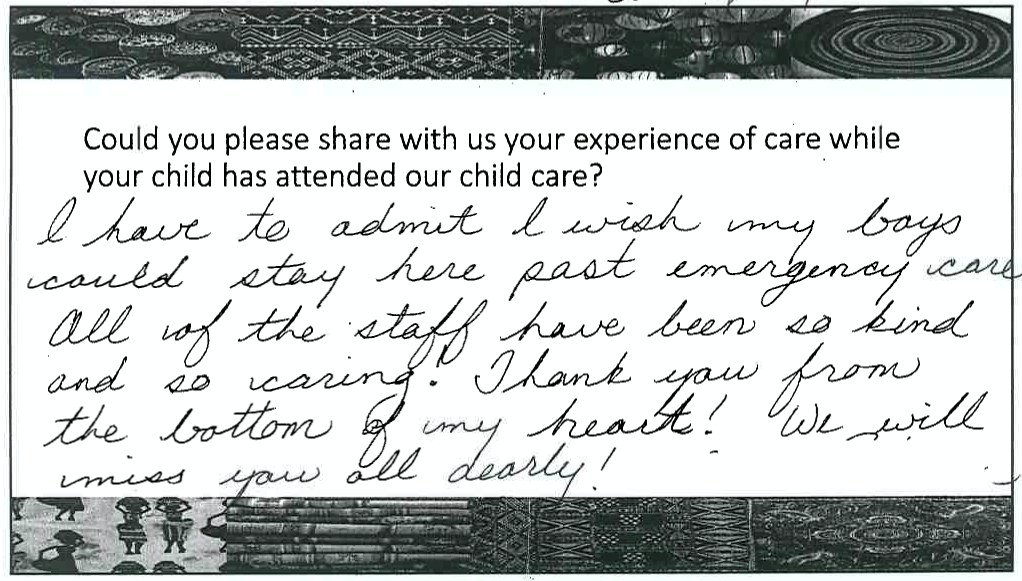 Could you please share with us your experience of care while
your child has attended our child care?
I have to admit I wish my boys
could stay here past emergency care
All of the staff have been so kind
and so caring! Thank you from
the bottom of my heart! We will
miss you all dearly!